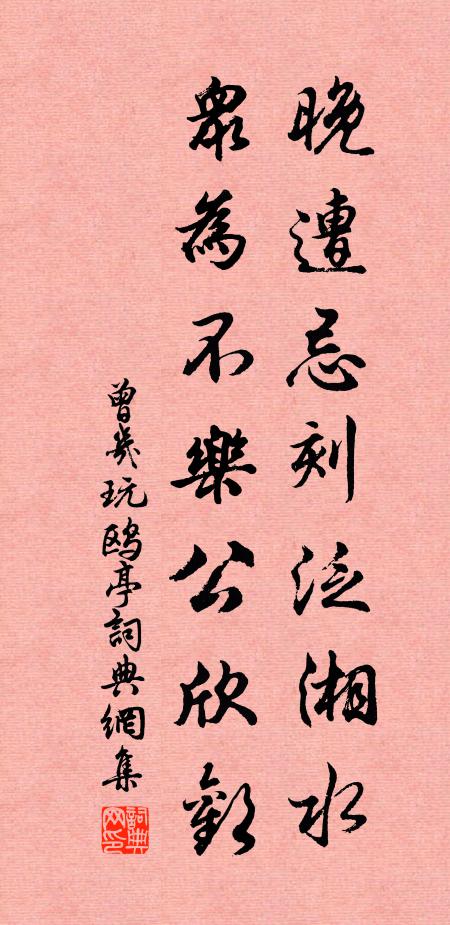 晚遭忌刻泛湘水
衆為不樂公欣歡
曾幾玩鷗亭詞典網集
詞典网印